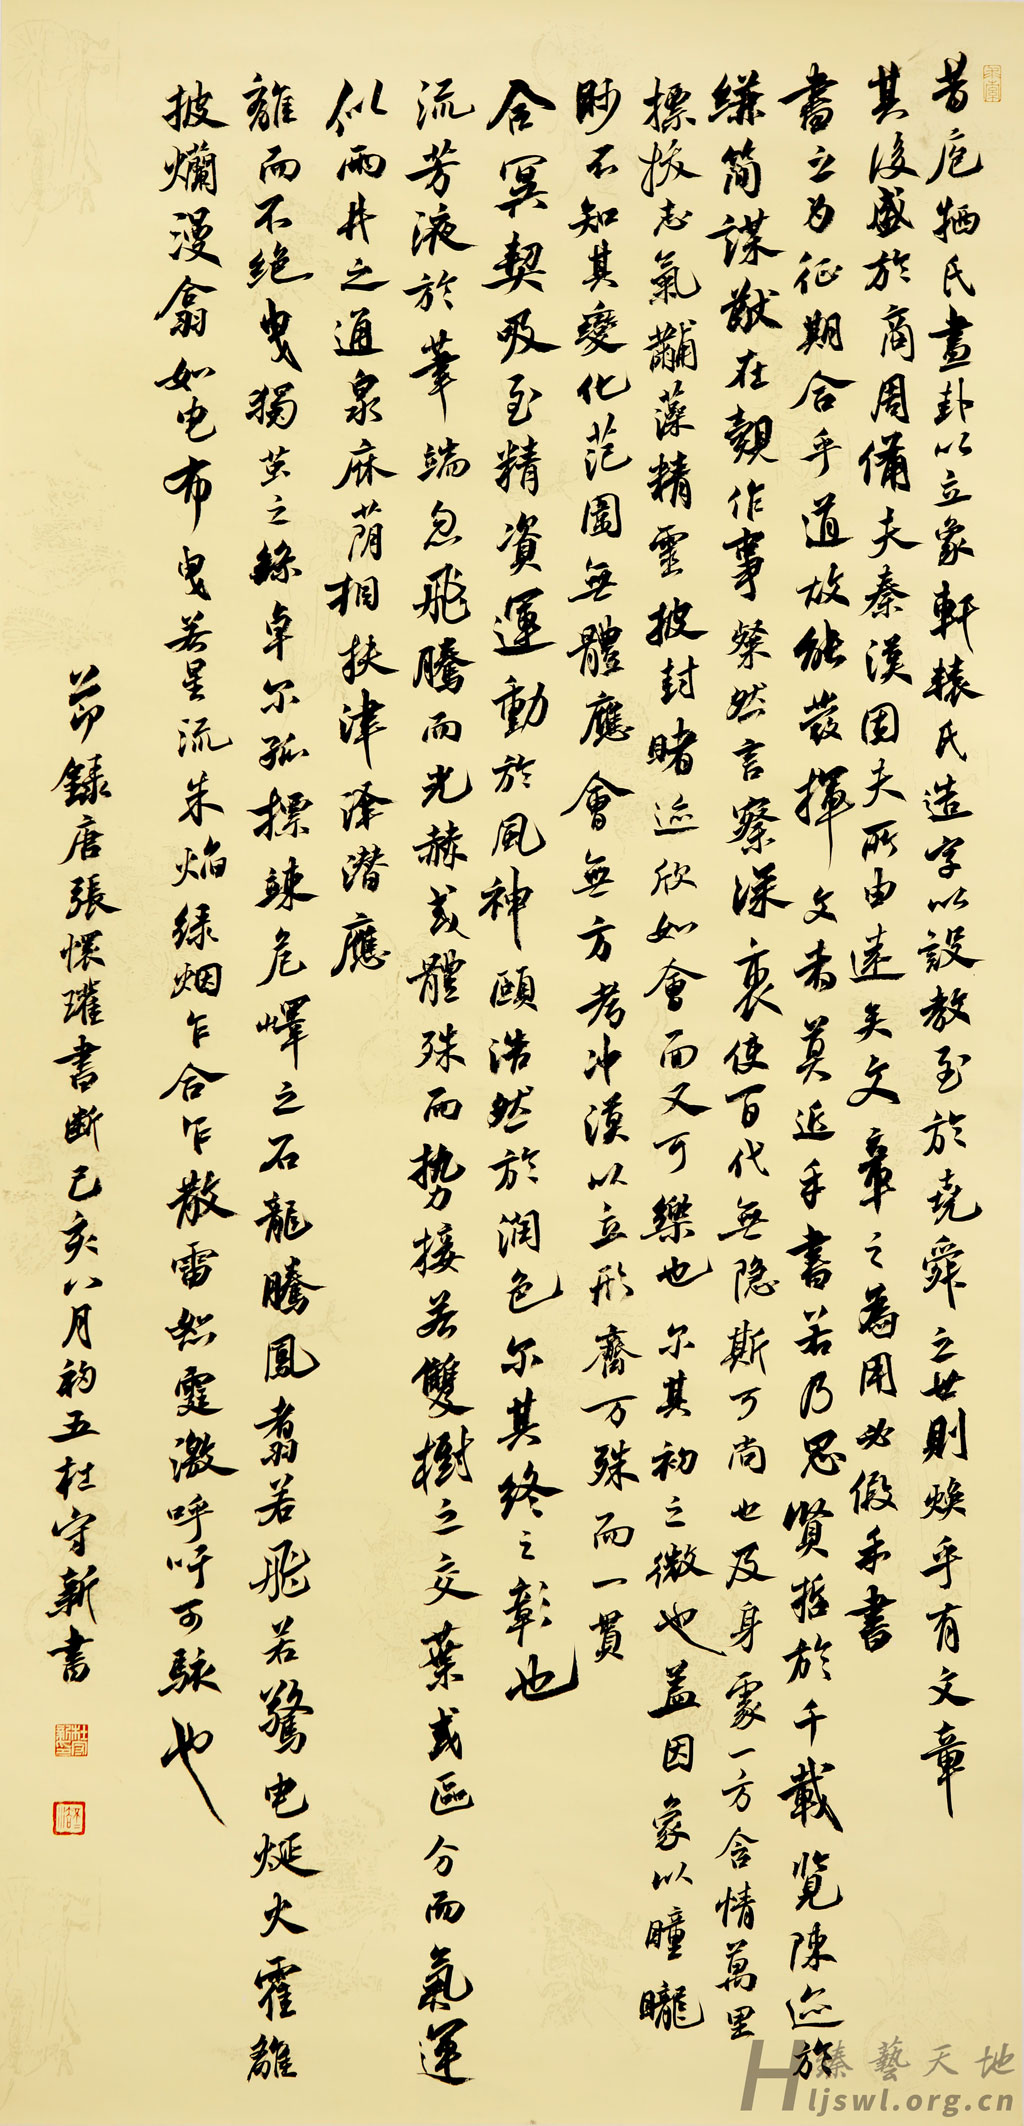 昔庖牺氏畫卦以立象軒辕氏造字以設教至於堯舜之世則焕乎有文章
其後盛於商周備夫秦漢固夫所由遠矣文章之為用必假乎書
書之为征期合乎道故能發揮文者莫近乎書若乃思賢哲於千載覽陳迹於
縑简謀猷在覿作事粲然言察深衷使百代無隐斯可尚也及身處一方含情萬里
摽拔志氣黼藻精靈披封睹迹欣如會面又可樂也尔其初之微也盖因象以瞳矓
眇不知其變化范圍無體應會無方考冲漠以立形齊万殊而一貫
合冥契吸至精資運動於風神頤浩然於润色尔其终之彰也
流芳液於筆端忽飛騰而光赫或體殊而势接若雙樹之交葉或區分而氣運
似兩井之通泉麻荫相扶津泽潜應
離而不绝曳獨茧之絲卓尔孤摽竦危峄之石龍騰鳳翥若飛若驚电烻火霍離
披爛漫翕如电布曳若星流朱焰绿烟乍合乍散雷怒霆激呼吁可駭也
節録唐張懷瓘書断己亥八月初五杜守新書
臻藝天地
hljswl.org.cn